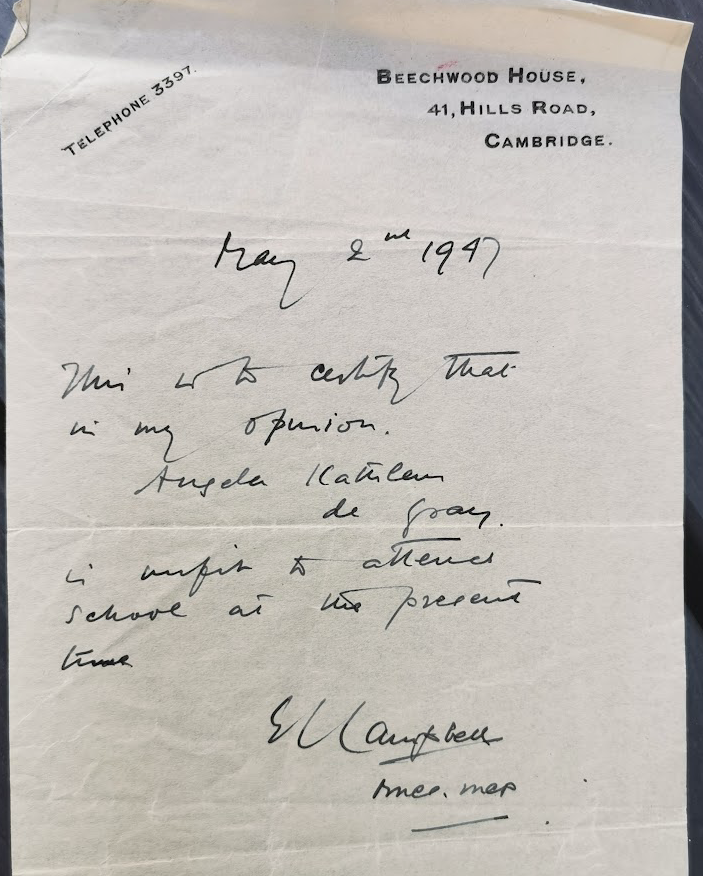 TELEPHONE 3397.
BEECHWOOD HOUSE,
41, HILLS ROAD,
CAMBRIDGE.
May 2nd 1947
This is to certify that
in my opinion.
Angela Kathleen
de Gray.
is unfit to attend
school at the present
time
Campbell